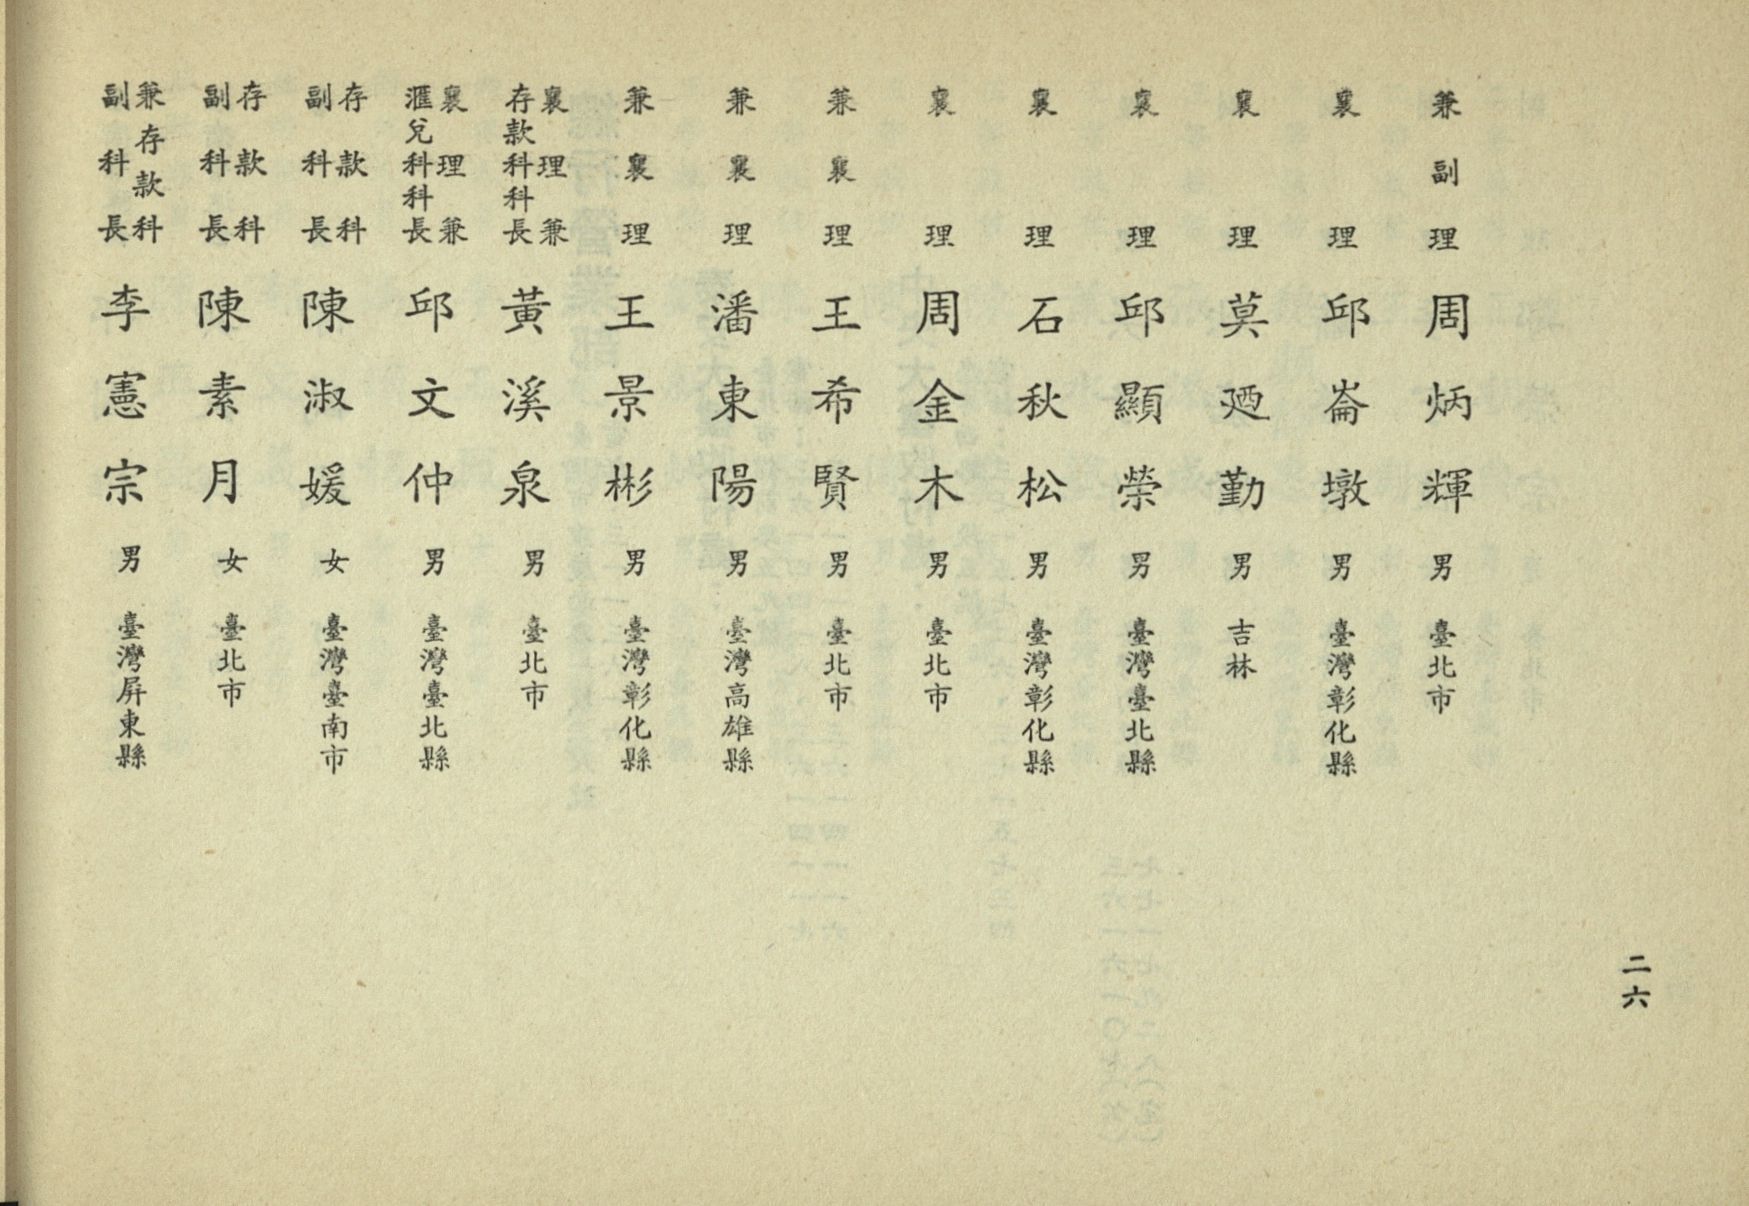 二六
兼副理 周炳輝 男 臺北市
襄理 邱崙墩 男 臺灣彰化縣
襄理 莫廼勤 男 吉林
襄理 邱顯榮 男 臺灣臺北縣
襄理 石秋松 男 臺灣彰化縣
襄理 周金木 男 臺北市
兼襄理 王希賢 男 臺北市
兼襄理 潘東陽 男 臺灣高雄縣
兼襄理 王景彬 男 臺灣彰化縣
襄理兼存款科科長 黃溪泉 男 臺北市
襄理兼滙兌科科長 邱文仲 男 臺灣臺北縣
存款科副科長 陳淑媛 女 臺灣臺南市
存款科副科長 陳素月 女 臺北市
兼存款科副科長 李憲宗 男 臺灣屏東縣